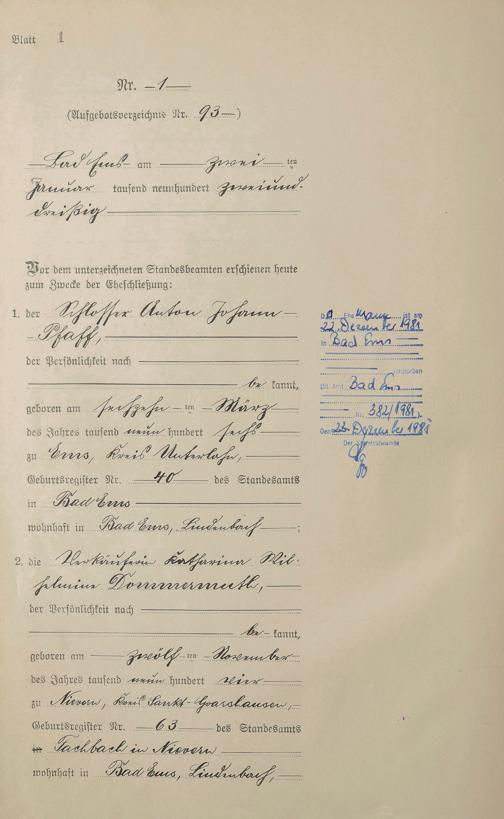 Blatt 1
Nr. 1
(Aufgebotsverzeichnis Nr. 93)
Bad Ems am zwei ten
Januar tausend neunhundert zweiund-
dreißig
Vor dem unterzeichneten Standesbeamten erschienen heute
zum Zwecke der Eheschließung:
1. der Schlosser Anton Johann
Pfaff,
der Persönlichkeit nach
be kannt,
geboren am sechzehn ten März
des Jahres tausend neun hundert sechs
zu Ems, Kreis Unterlahn,
Geburtsregister Nr. 40 des Standesamts
in Bad Ems
wohnhaft in Bad Ems, Lindenbach ;
2. die Verkäuferin Katharina Wil-
helmine Dommermuth,
der Persönlichkeit nach
be kannt,
geboren am zwölf ten November
des Jahres tausend neun hundert vier
zu Nievern, Kreis Sankt-Goarshausen,
Geburtsregister Nr. 63 des Standesamts
in Fachbach in Nievern
wohnhaft in Bad Ems, Lindenbach,
Ehemann ist am
22. Dezember 1981
in Bad Ems
verstorben
Bad Ems
Nr. 382/1981.
23. Dezember 1981
Der Standesbeamte